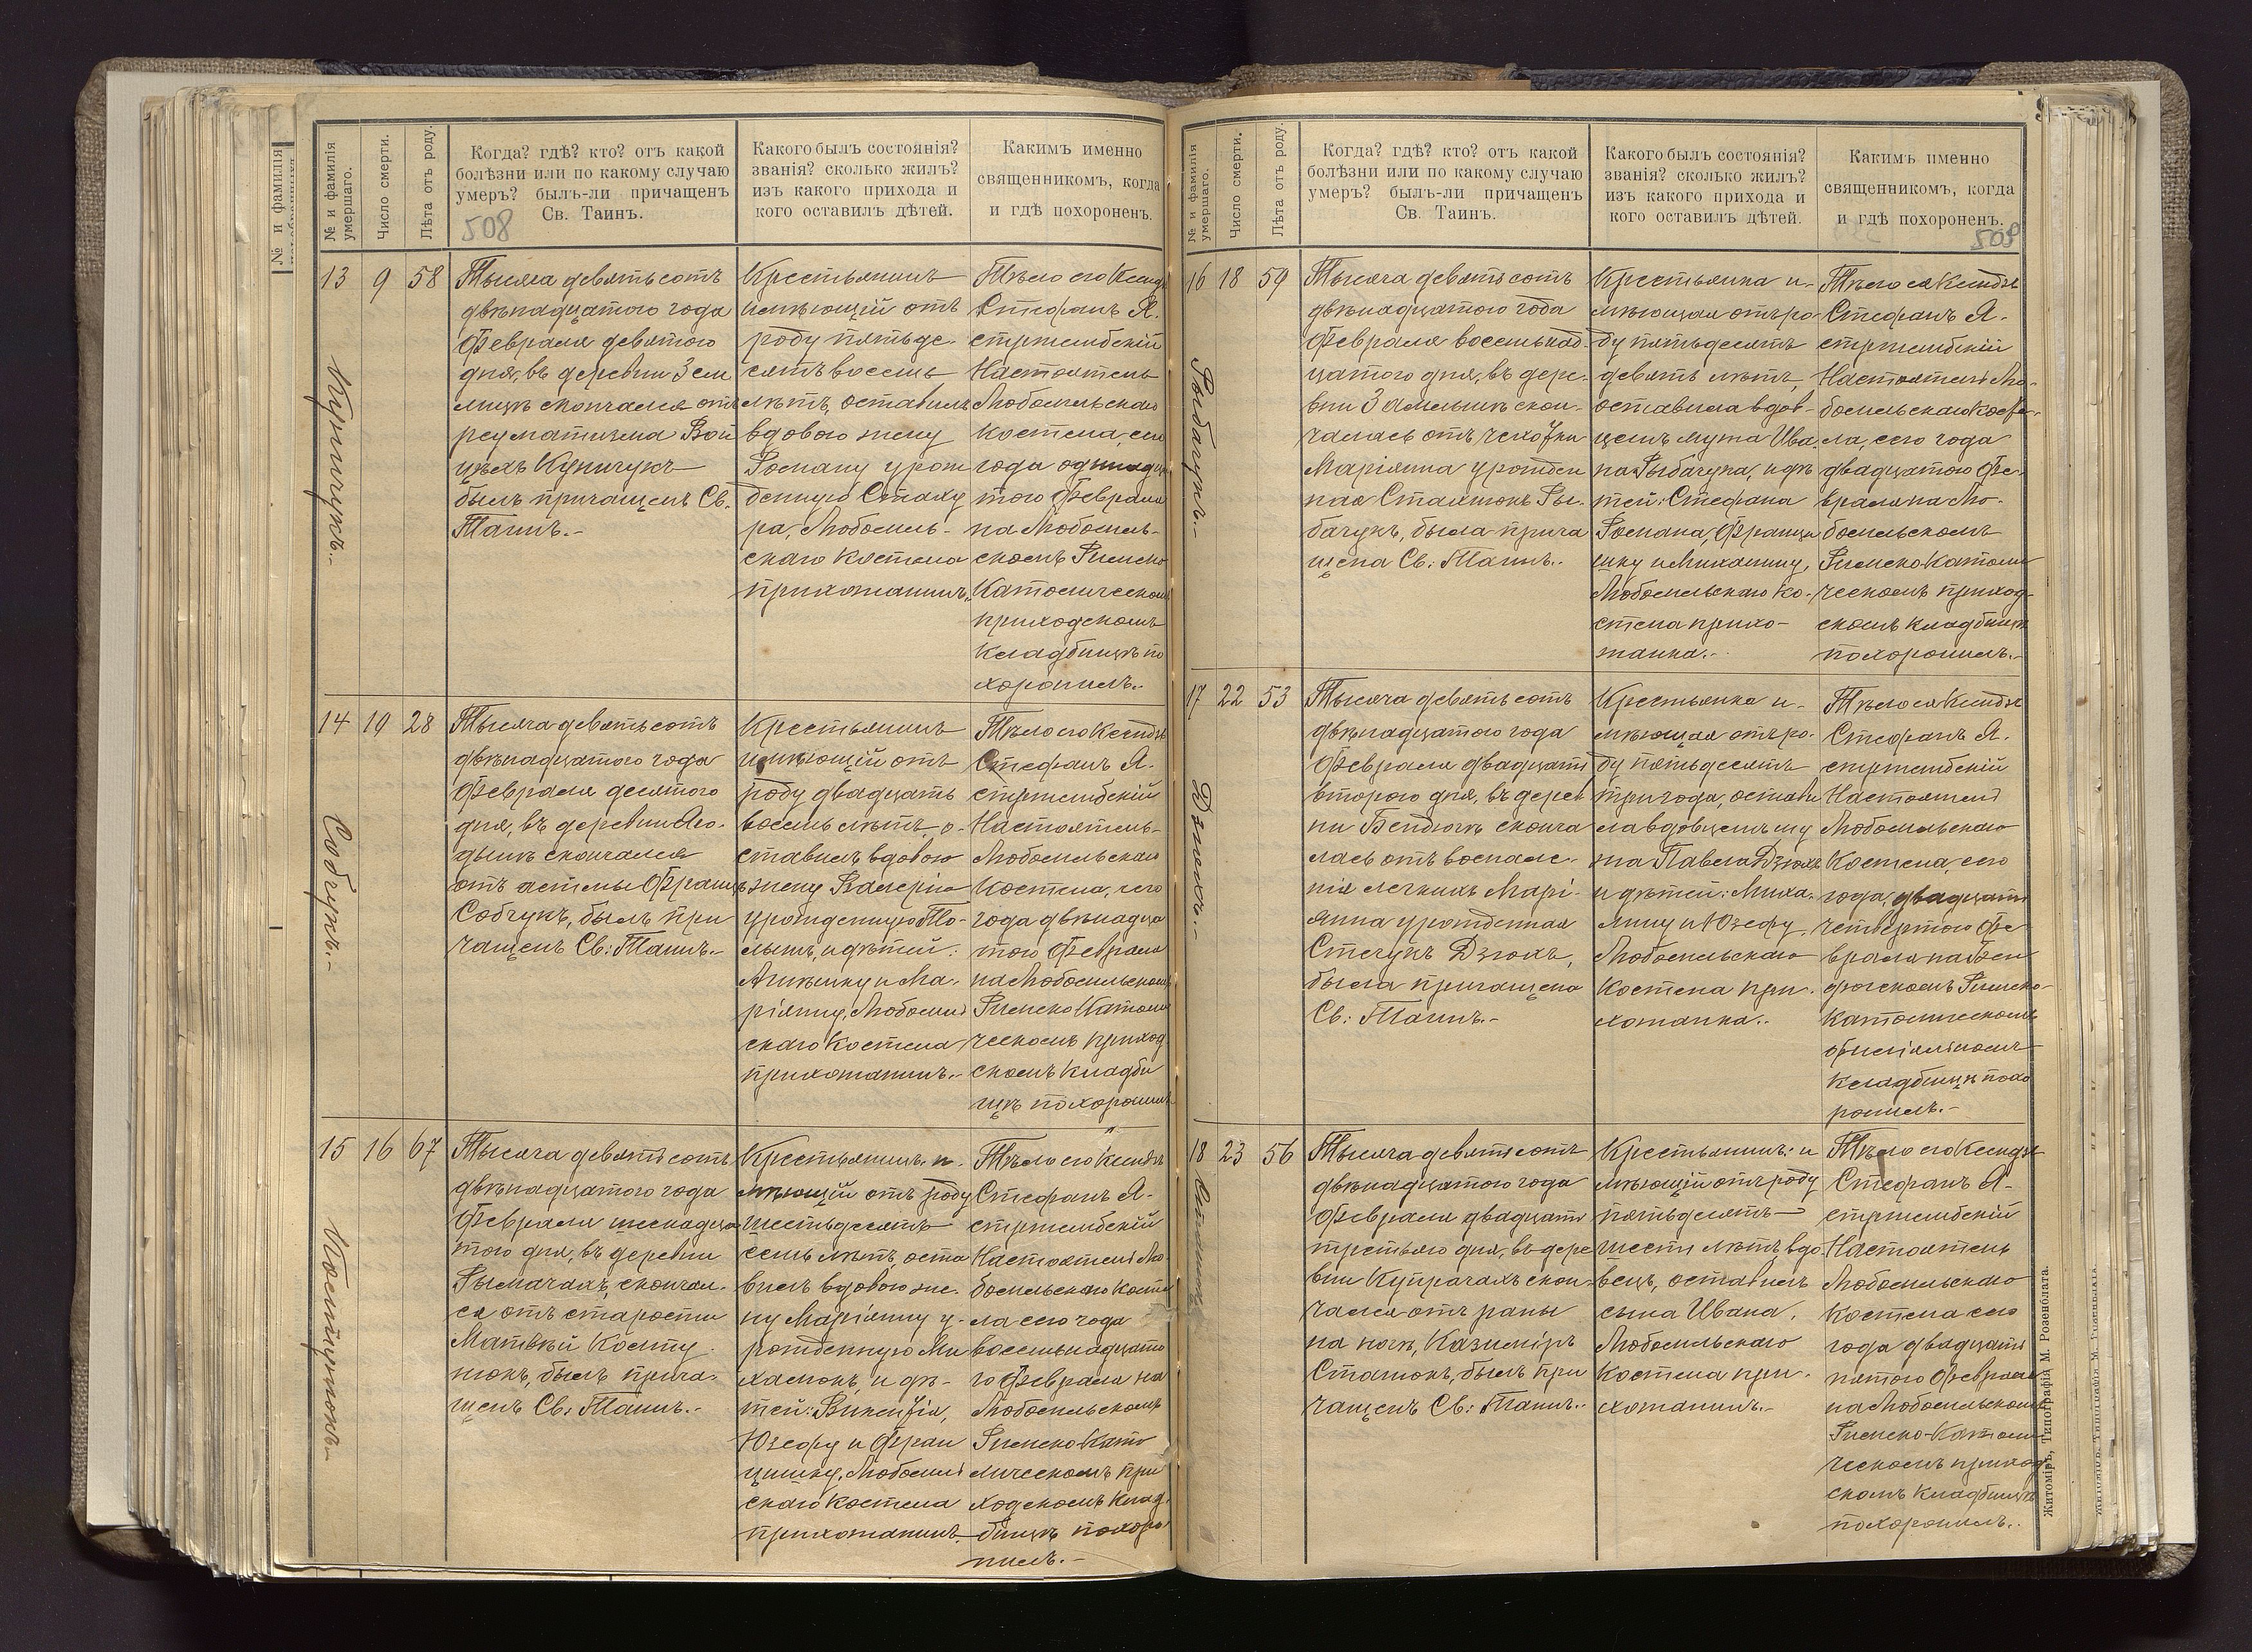 № и фамилія
умершаго.
Число смерти.
Лѣта отъ роду.
Когда? гдѣ? кто? отъ какой
болѣзни или по какому случаю
умеръ? былъ-ли причащенъ
Св. Таинъ.
508
Какого былъ состоянія?
званія? сколько жилъ?
изъ какого прихода и
кого оставилъ дѣтей.
Какимъ именно
священникомъ, когда
и гдѣ похороненъ.
13
Куничукъ.
9
58
Тысяча девятьсотъ
двѣнадцатого года
Февраля девятого
дня, въ деревни Зем
лицѣ скончался отъ
реуматизма Вой
цѣхъ Куничукъ
былъ причащенъ Св.
Таинъ.-
Крестьянинъ
имѣющій отъ
роду пятьде-
сятъ восемь
лѣтъ, оставилъ
вдовою жену
Роману урож
денную Стаху
ра, Любомль-
скаго костела
прихожанинъ.
Тѣло его Ксендзъ
Стефанъ Я-
стржембскій
Настоятель
Любомльскаго
костела, сего
года одинадца
того Февраля
на Любомль-
скомъ Римско
Католическомъ
приходскомъ
кладбищѣ по
хоронилъ.-
14
Собчукъ.-
10
28
Тысяча девятьсотъ
двѣнадцатого года
Февраля десятого
дня, въ деревни Яго-
дынѣ скончался
отъ астмы Францъ
Собчукъ, былъ при
чащенъ Св: Таинъ.-
Крестьянинъ
имѣющій отъ
роду двадцать
восемь лѣтъ, о-
ставилъ вдовою
жену Валерію
урожденную По-
лышъ, и дѣтей:
Анѣлку и Ма-
ріянну, Любомль
скаго костела
прихожанинъ.-
Тѣло его Ксендзъ
Стефанъ Я-
стржембскій
Настоятель
Любомльскаго
костела, сего
года двѣнадца
того Февраля
на Любомльскомъ
Римско Католи
ческомъ приход
скомъ кладби
щѣ похоронилъ
15
Костюнюкъ
16
67
Тысяча девятьсотъ
двѣнадцатого года
Февраля шеснадца
того дня, въ деревни
Рымачахъ, скончал-
ся отъ старости
Матвѣй Косту-
нюкъ, былъ прича-
щенъ Св: Таинъ.-
Крестьянинъ, и-
мѣющій отъ роду
шестьдесятъ
семь лѣтъ, оста
вилъ вдовою же-
ну Маріянну у-
рожденную Ми
халюкъ, и дѣ-
тей: Викентія,
Юзефу и Фран
цишку, Любомль
скаго костела
прихожанинъ.
Тѣло его Ксендзъ
Стефанъ Я-
стржембскій
Настоятель Лю-
бомльскаго косте
ла сего года
восемьнадцато
го Февраля на
Любомльскомъ
Римско-Като
лическомъ при
ходскомъ клад-
бищѣ похоро
нилъ.-
№ и фамилія
умершаго.
Число смерти.
Лѣта отъ роду.
Когда? гдѣ? кто? отъ какой
болѣзни или по какому случаю
умеръ? былъ-ли причащенъ
Св. Таинъ.
Какого былъ состоянія?
званія? сколько жилъ?
изъ какого прихода и
кого оставилъ дѣтей.
Какимъ именно
священникомъ, когда
и гдѣ похороненъ.
509
16
Рыбачукъ.-
18
59
Тысяча девятьсотъ
двѣнадцатого года
Февраля восемьнад-
цатого дня, въ дере-
вни Замлынѣ скон-
чалась отъ чехотки
Маріянна урожден
ная Сталюкъ Ры-
бачукъ, была прича
щена Св: Таинъ.
Крестьянка и-
мѣющая отъ ро-
ду пятьдесятъ
девять лѣтъ,
оставила вдов-
цемъ мужа Ива
на Рыбачука, и дѣ
тей: Стефана
Романа, Франци
шку и Михалину,
Любомльскаго ко-
стела прихо-
жанка.-
Тѣло ея Ксендзъ
Стефанъ Я-
стржембскій
Настоятель Лю-
бомльскаго косте-
ла, сего года
двадцатого Фе-
враля на Лю-
бомльскомъ
Римско Католи
ческомъ приход-
скомъ кладбищѣ
похоронилъ.-
17
Дзюкъ.-
22
53
Тысяча девятьсотъ
двѣнадцатого года
Февраля двадцать
второго дня, въ дерев
ни Бендюгѣ сконча
лась отъ воспале-
нія легкихъ Марі-
янна урожденная
Стечукъ Дзюкъ,
была причащена
Св: Таинъ.-
Крестьянка и-
мѣющая отъ ро-
ду пятьдесятъ
три года, остави
ла вдовцемъ му
жа Павла Дзюкъ
и дѣтей: Миха-
лину и Юзефу,
Любомльскаго
костела при-
хожанка.
Тѣло ея Ксендзъ
Стефанъ Я-
стржембскій
Настоятель
Любомльскаго
Костела, сего
года, двадцать
четвертого Фе-
враля на Бен
дюгскомъ Римско-
католическомъ
филіяльномъ
кладбищѣ похо
ронилъ.-
18
23
56
Тысяча девятьсотъ
двѣнадцатого года
Февраля двадцать
третьяго дня, въ дере
вни Купрачахъ скон-
чался отъ раны
на ногѣ, Казиміръ
Сталюкъ, былъ при
чащенъ Св: Таинъ.
Крестьянинъ: и
мѣющій отъ роду
пятьдесятъ
шесть лѣтъ, вдо
вецъ, оставилъ
сына Ивана,
Любомльскаго
костела при-
хожанинъ.-
Тѣло его Ксендзъ
Стефанъ Я-
стржембскій
Настоятель
Любомльскаго
Костела сего
года двадцать
пятого Февраля
на Любомльскомъ
Римско-Католи
ческомъ приход
скомъ кладбищѣ
похоронилъ.
Житоміръ, Типографія М. Розенблата.
№ и фамилія